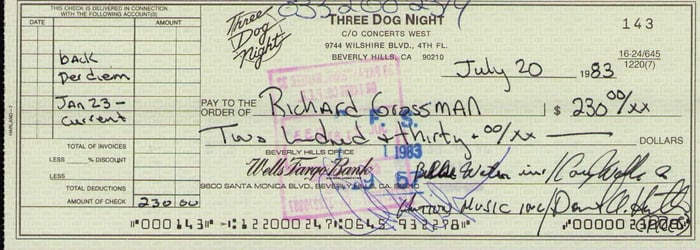 THIS CHECK IS DELIVERED IN CONNECTION
WITH THE FOLLOWING ACCOUNT(S)
DATE AMOUNT
back
Per diem
Jan 23 -
Current
TOTAL OF INVOICES
LESS % DISCOUNT
LESS
TOTAL DEDUCTIONS
AMOUNT OF CHECK 230 00
HARLAND-7
Three Dog Night
THREE DOG NIGHT
C/O CONCERTS WEST
9744 WILSHIRE BLVD., 4TH FL.
BEVERLY HILLS, CA 90210
143
16-24/645
1220(7)
July 20 1983
PAY TO THE
ORDER OF Richard Grossman $ 230 00/xx
Two hundred & thirty + 00/xx DOLLARS
BEVERLY HILLS OFFICE
Wells Fargo Bank
9600 SANTA MONICA BLVD., BEVERLY HILLS, CA 90210
Music inc/
⑈000143⑈ ⑆122000247⑆0645